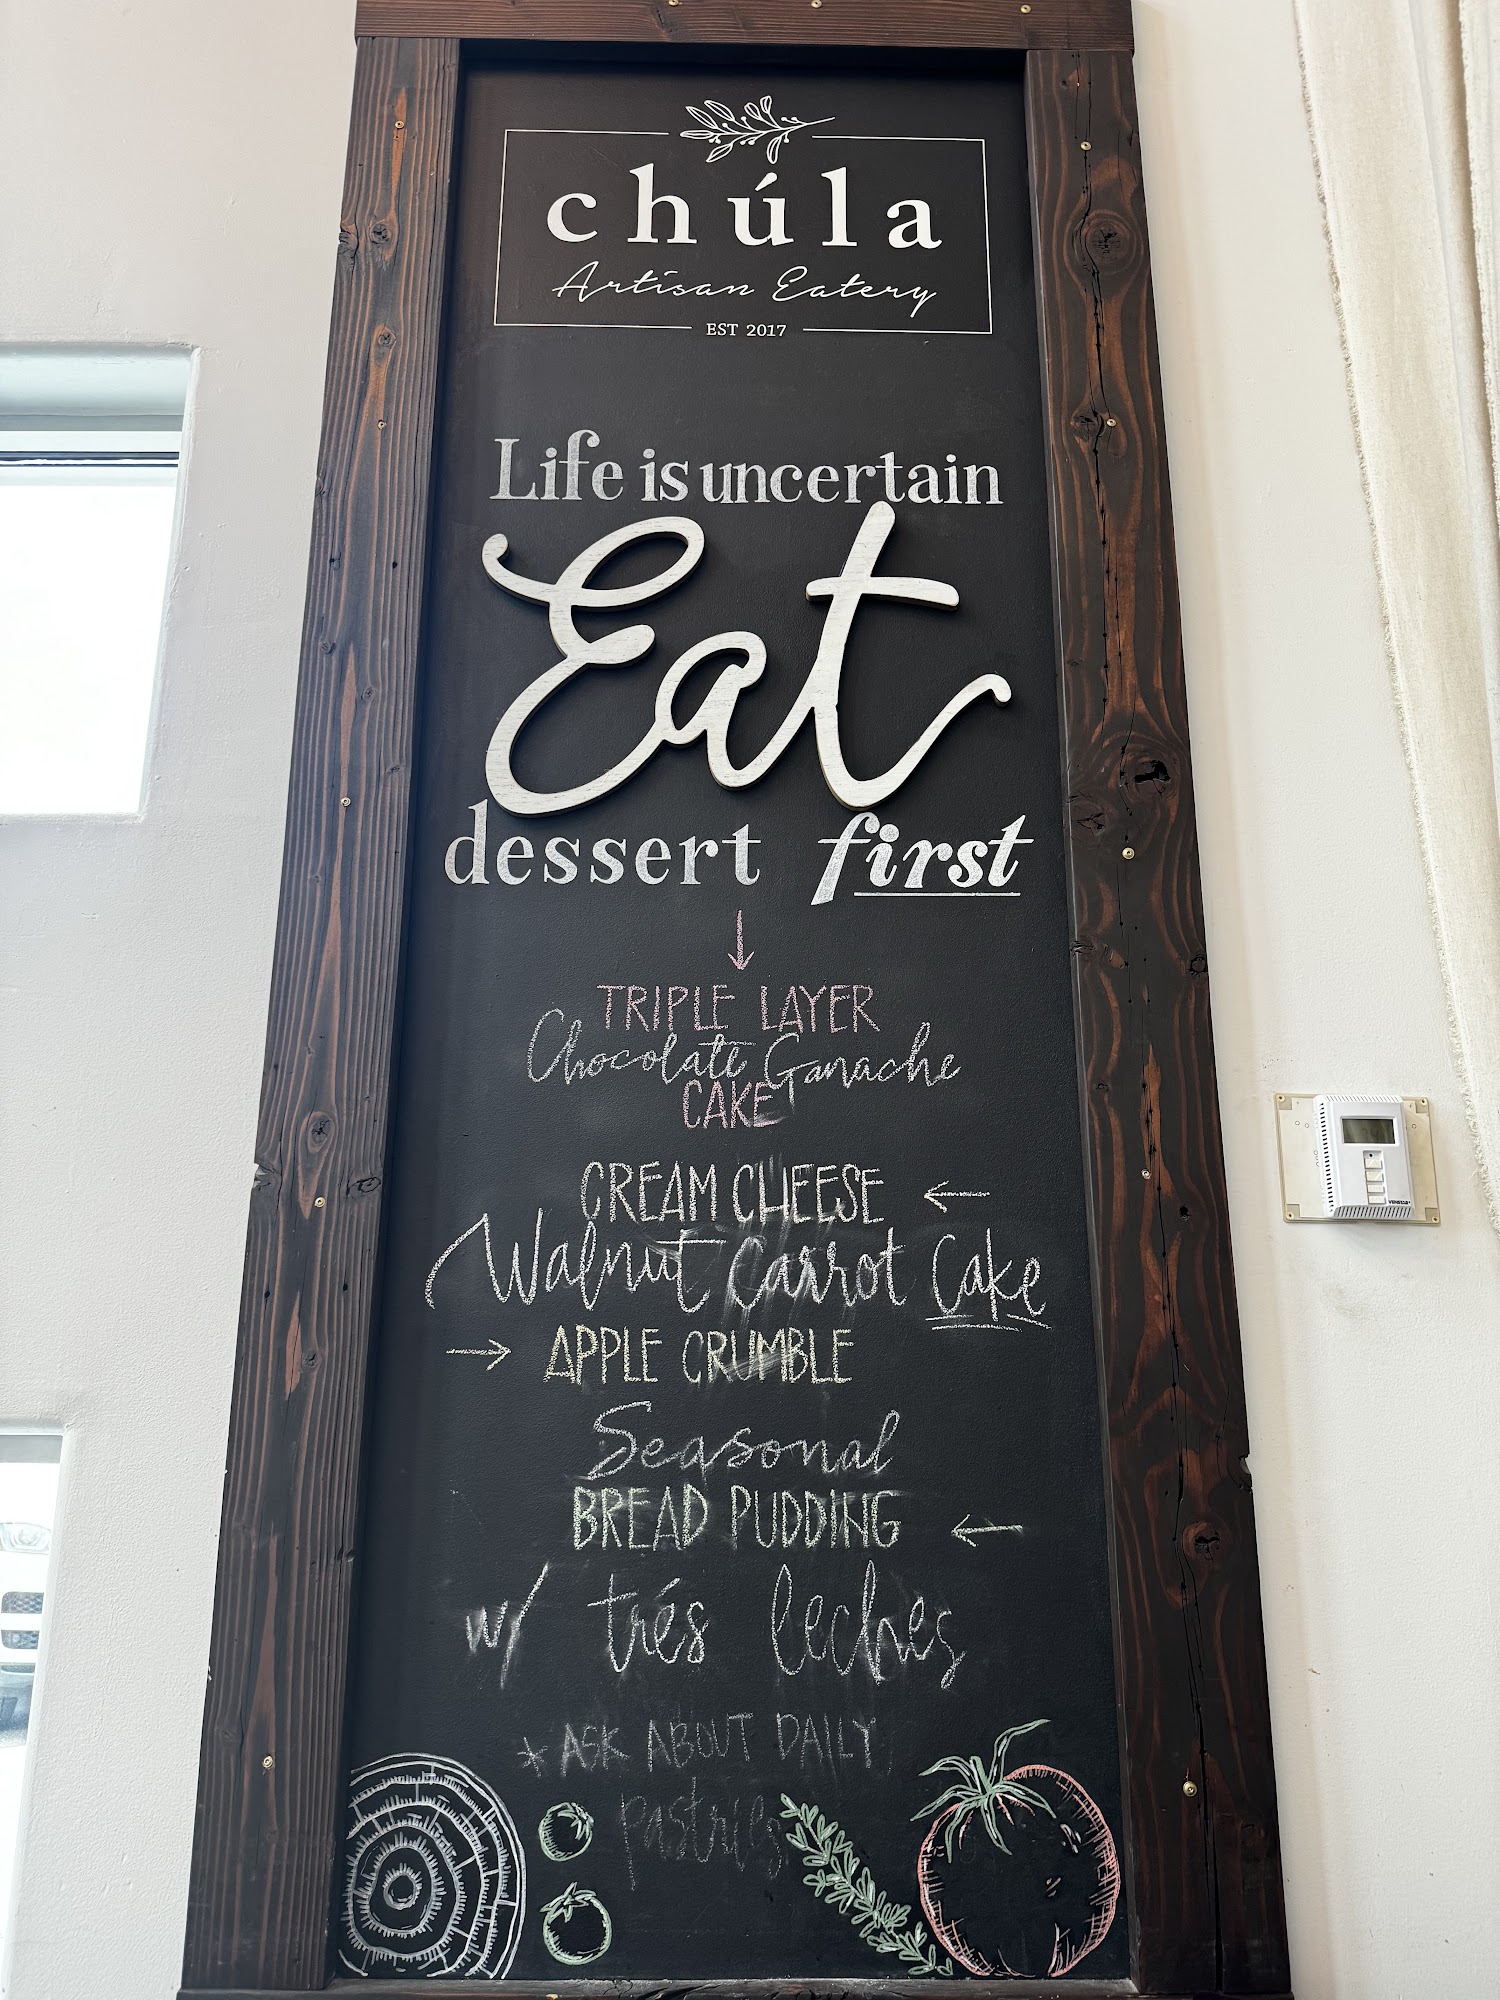 chúla
Artisan Eatery
EST 2017
Life is uncertain
Eat
dessert first
TRIPLE LAYER
Chocolate Ganache
CAKE
CREAM CHEESE
Walnut Carrot Cake
APPLE CRUMBLE
Seasonal
BREAD PUDDING
w/ trés leches
*ASK ABOUT DAILY
Pastries